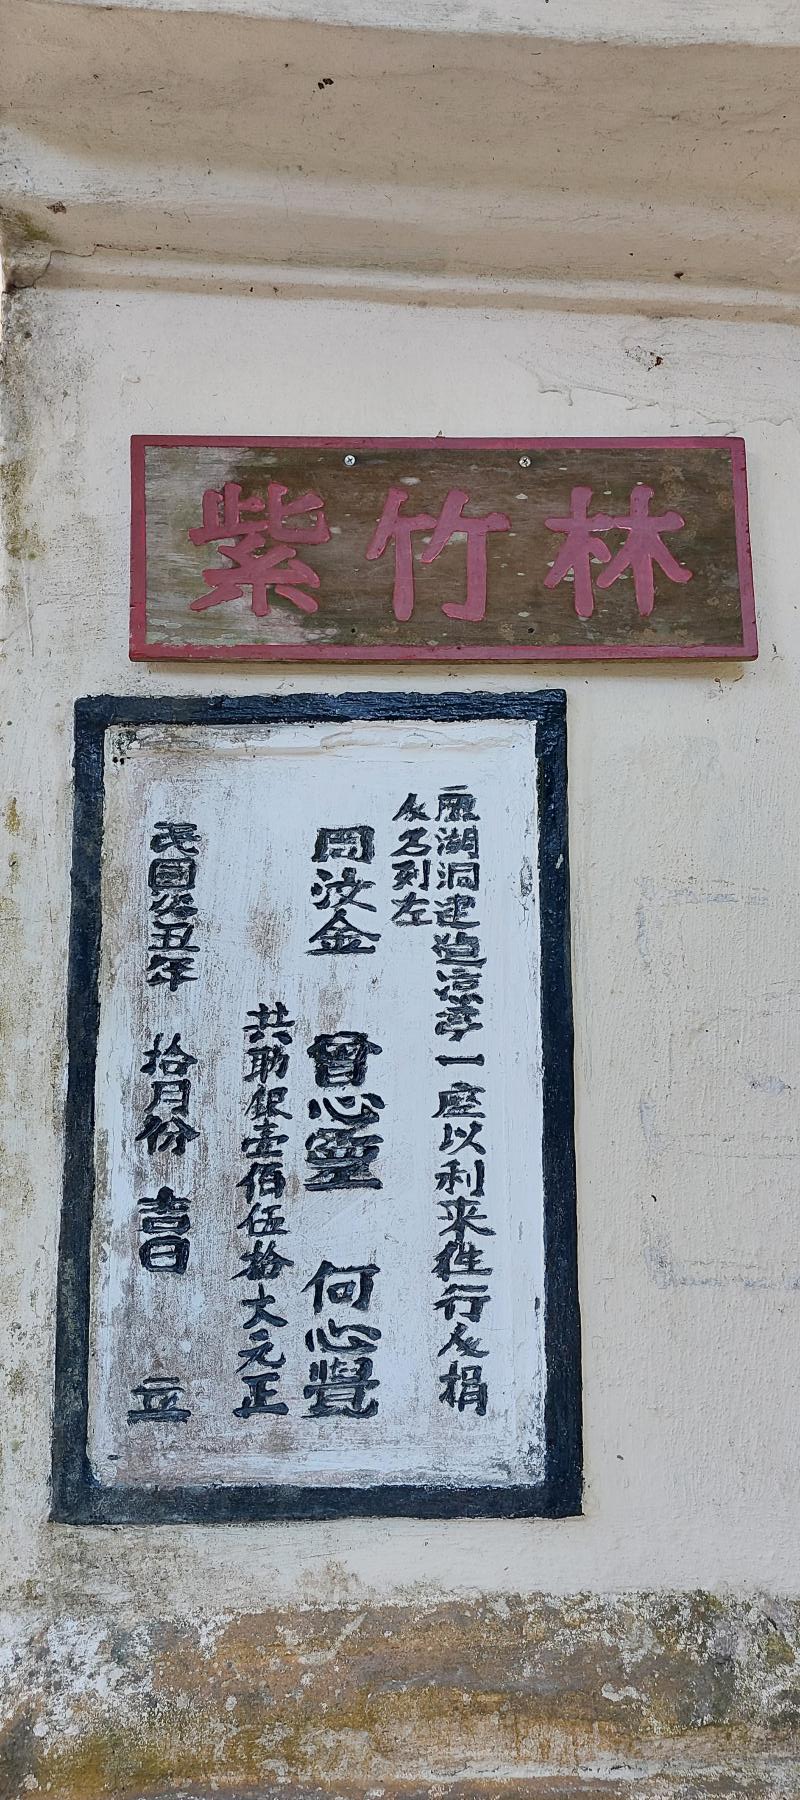 紫竹林
鹿湖洞建造凉亭一座以利來往行人捐
人名列左
周汝金 曾心靈 何心覺
共助銀壹佰伍拾大元正
民國癸丑年 拾月份 吉日 立